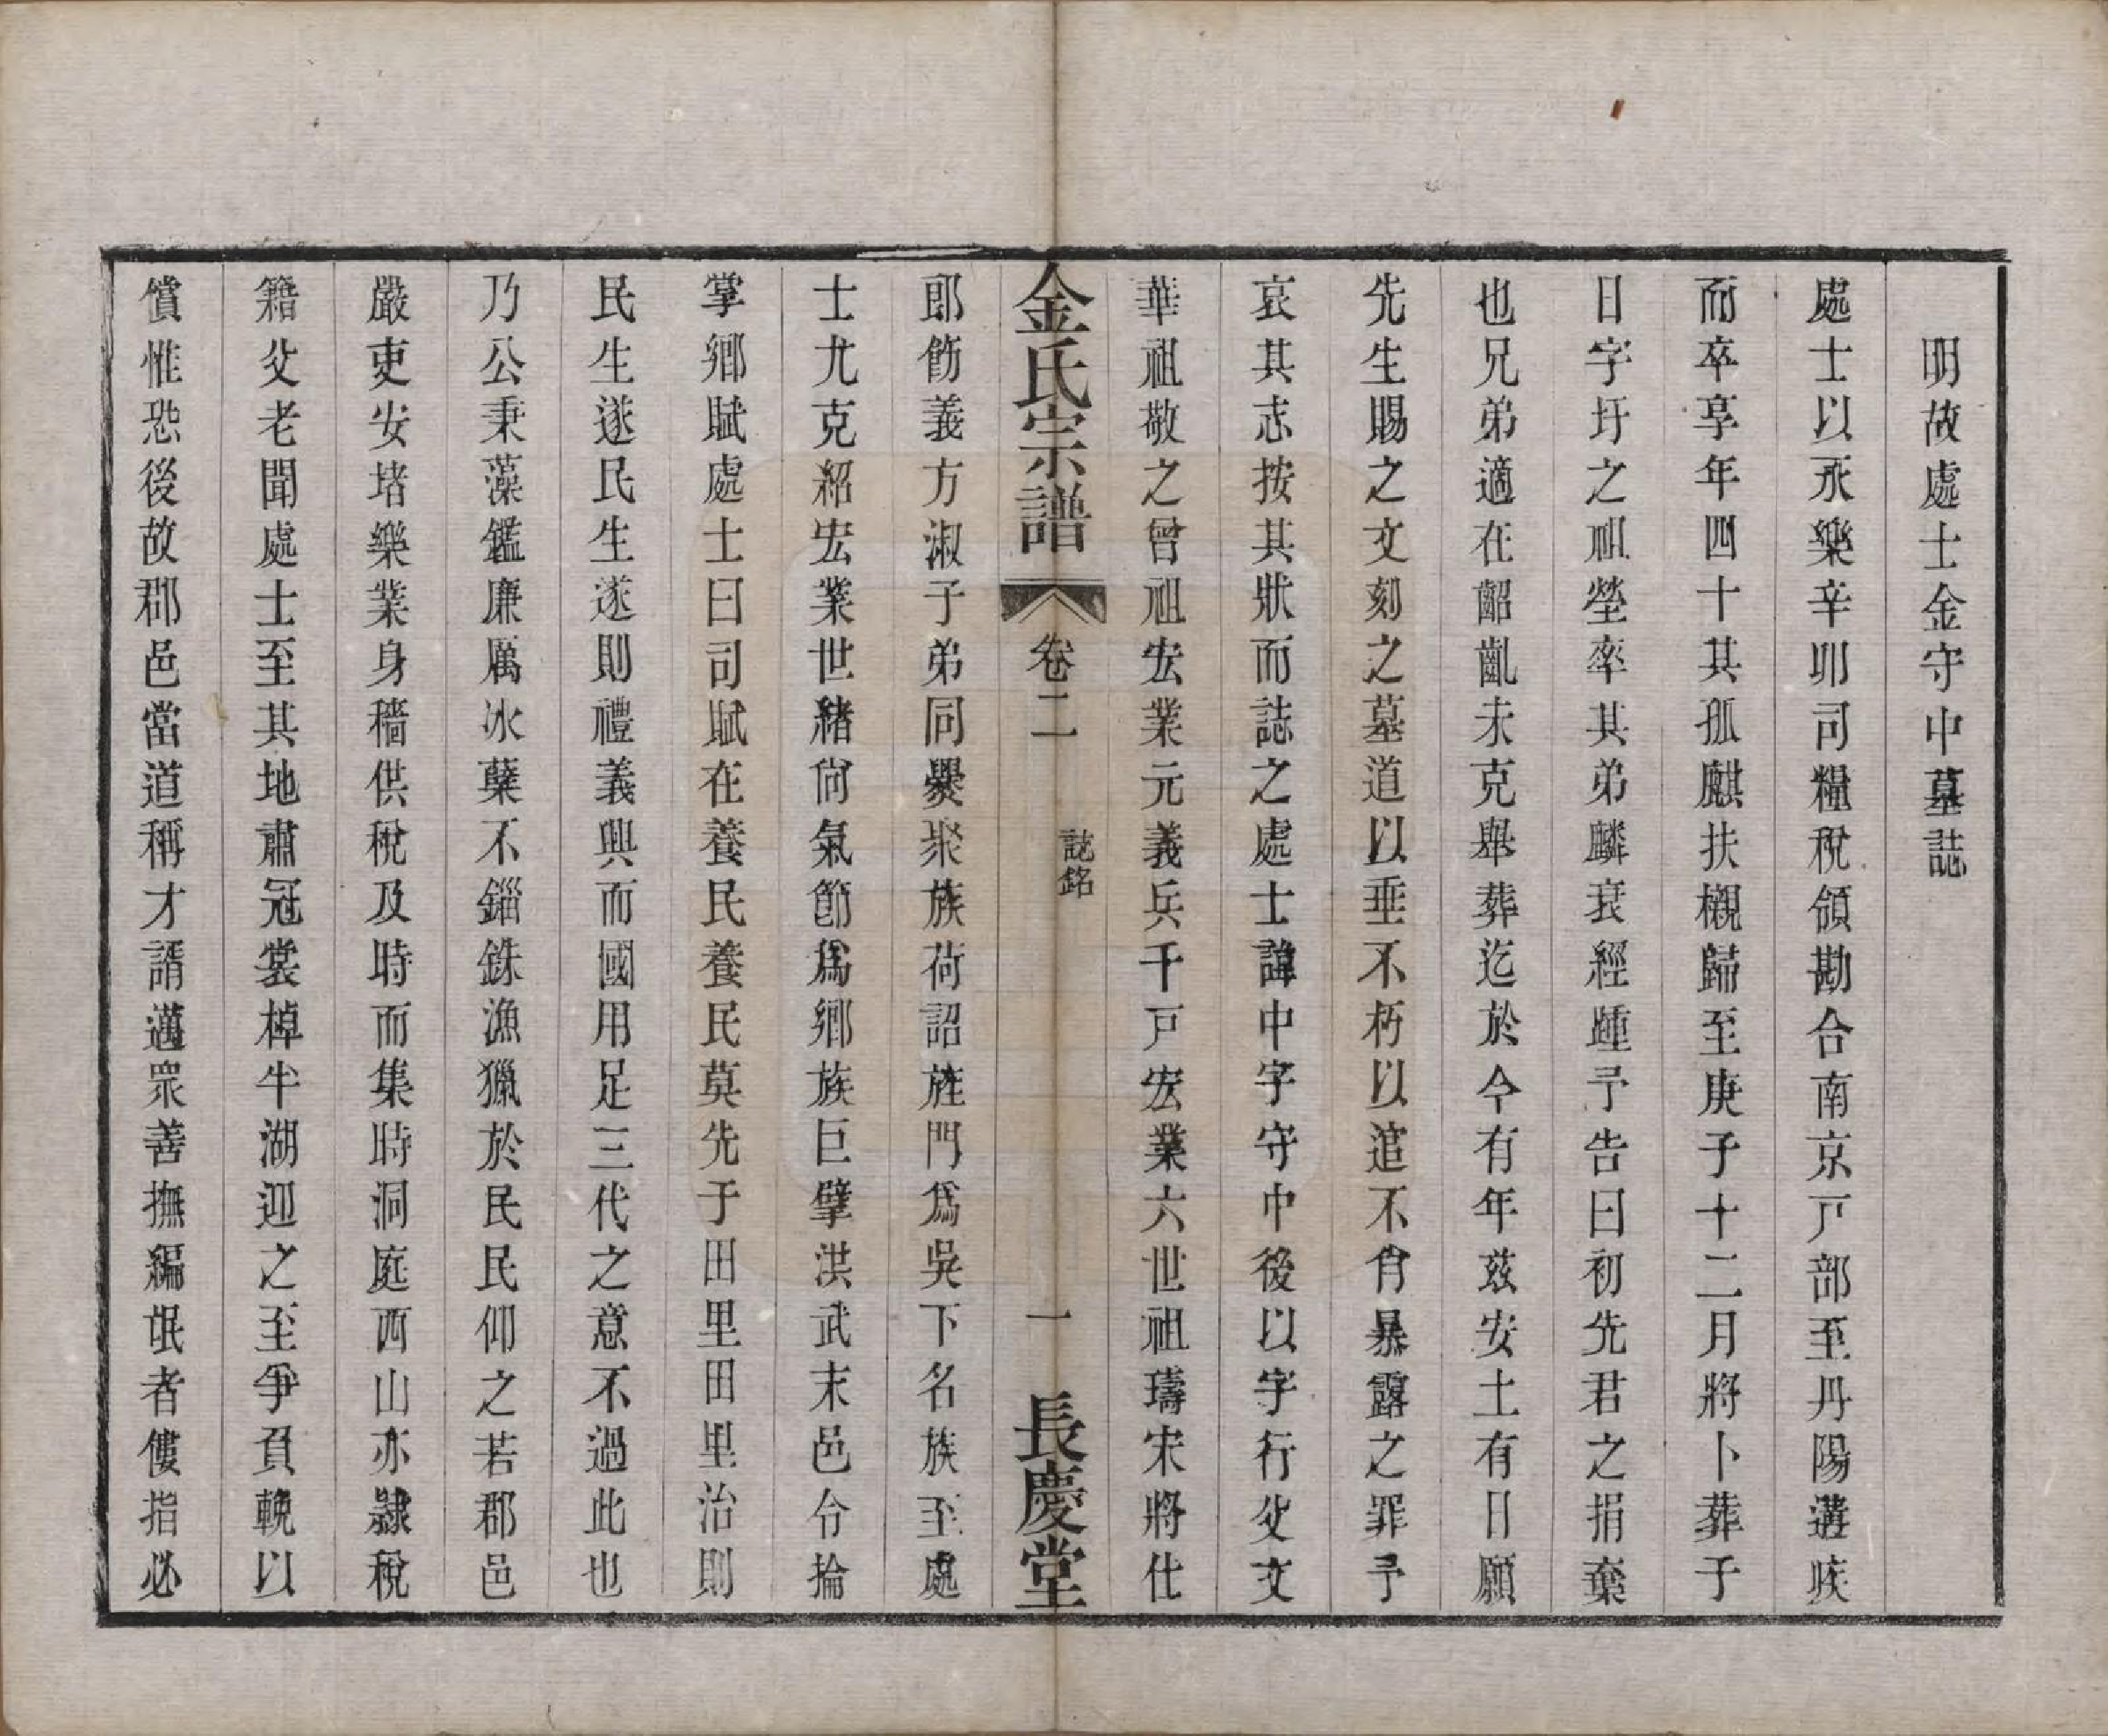 明故處士金守中墓誌
處士以永樂辛卯司糧稅領勘合南京戸部至丹陽遘疾
而卒享年四十其孤麒扶櫬歸至庚子十二月將卜葬于
日字圩之祖塋率其弟麟衰經踵予告曰初先君之捐棄
也兄弟適在齠齓未克舉葬迄於今有年茲安土有日願
先生賜之文刻之墓道以垂不朽以逭不肖暴露之罪予
哀其志按其狀而誌之處士諱中字守中後以字行父文
華祖敬之曾祖宏業元義兵千戸宏業六世祖璹宋將仕
金氏宗譜 卷二 誌銘 一 長慶堂
郎飭義方淑子弟同爨聚族荷詔旌門爲吳下名族至處
士尤克紹宏業世緒尙氣節爲鄉族巨擘洪武末邑令掄
掌鄉賦處士曰司賦在養民養民莫先于田里田里治則
民生遂民生遂則禮義興而國用足三代之意不過此也
乃公秉藻鑑廉厲冰蘗不錙銖漁獵於民民仰之若郡邑
嚴吏安堵樂業身穡供稅及時而集時洞庭西山亦隸稅
籍父老聞處士至其地肅冠裳棹半湖迎之至爭負輓以
償惟恐後故郡邑當道稱才諝邁眾善撫編氓者僂指必